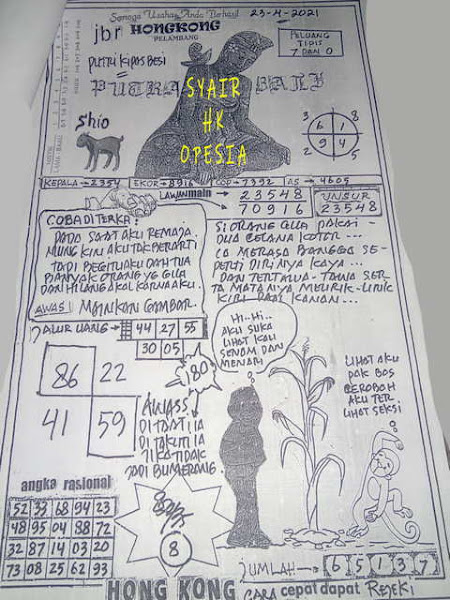 Semoga Usaha Anda Berhasil
23-4-2021
jbr HONGKONG
PALEMBANG
PELUANG
TIPIS
7 DAN 0
PUTRI KIPAS BESI
PUTRA BALI
SYAIR
HK
OPESIA
Shio
3 6 1 8
2 9 4 5
KEPALA = 2354 EKOR = 8916 COP = 7392 AS = 4605
LAWAN main
23548
70916
UNSUR
23548
COBA DITERKA:
PADA SAAT AKU REMAJA
MUNGKIN AKU TAK BERARTI
TAPI BEGITU AKU DAH TUA
BANYAK ORANG YG GILA
DAN HILANG AKAL KARNA AKU.
AWAS! MAINKAN GAMBAR.
SI ORANG GILA PAKAI
DUA CELANA KOTOR...
IA MERASA BANGGA SE-
DAN TERTAWA-TAWA SER
TA MATANYA MELIRIK-LIRIK
KIRI DAN KANAN...
JALUR UANG
44 27 55
30 05
86 22
80
41 59
HI..HI..
AKU SUKA
LIHAT KAU
SENAM DAN
MENARI
LIHAT AKU
PAK BOS
CEROBOH
AKU TER
LIHAT SEKSI
AWASS
JIKA TIDAK
JADI BUMERANG.
8
angka rasional
52 39 68 94 23
48 95 04 88 72
32 87 14 03 20
73 08 25 62 93
JUMLAH = 6 5 1 3 7
HONG KONG CARA cepat dapat REJEKI